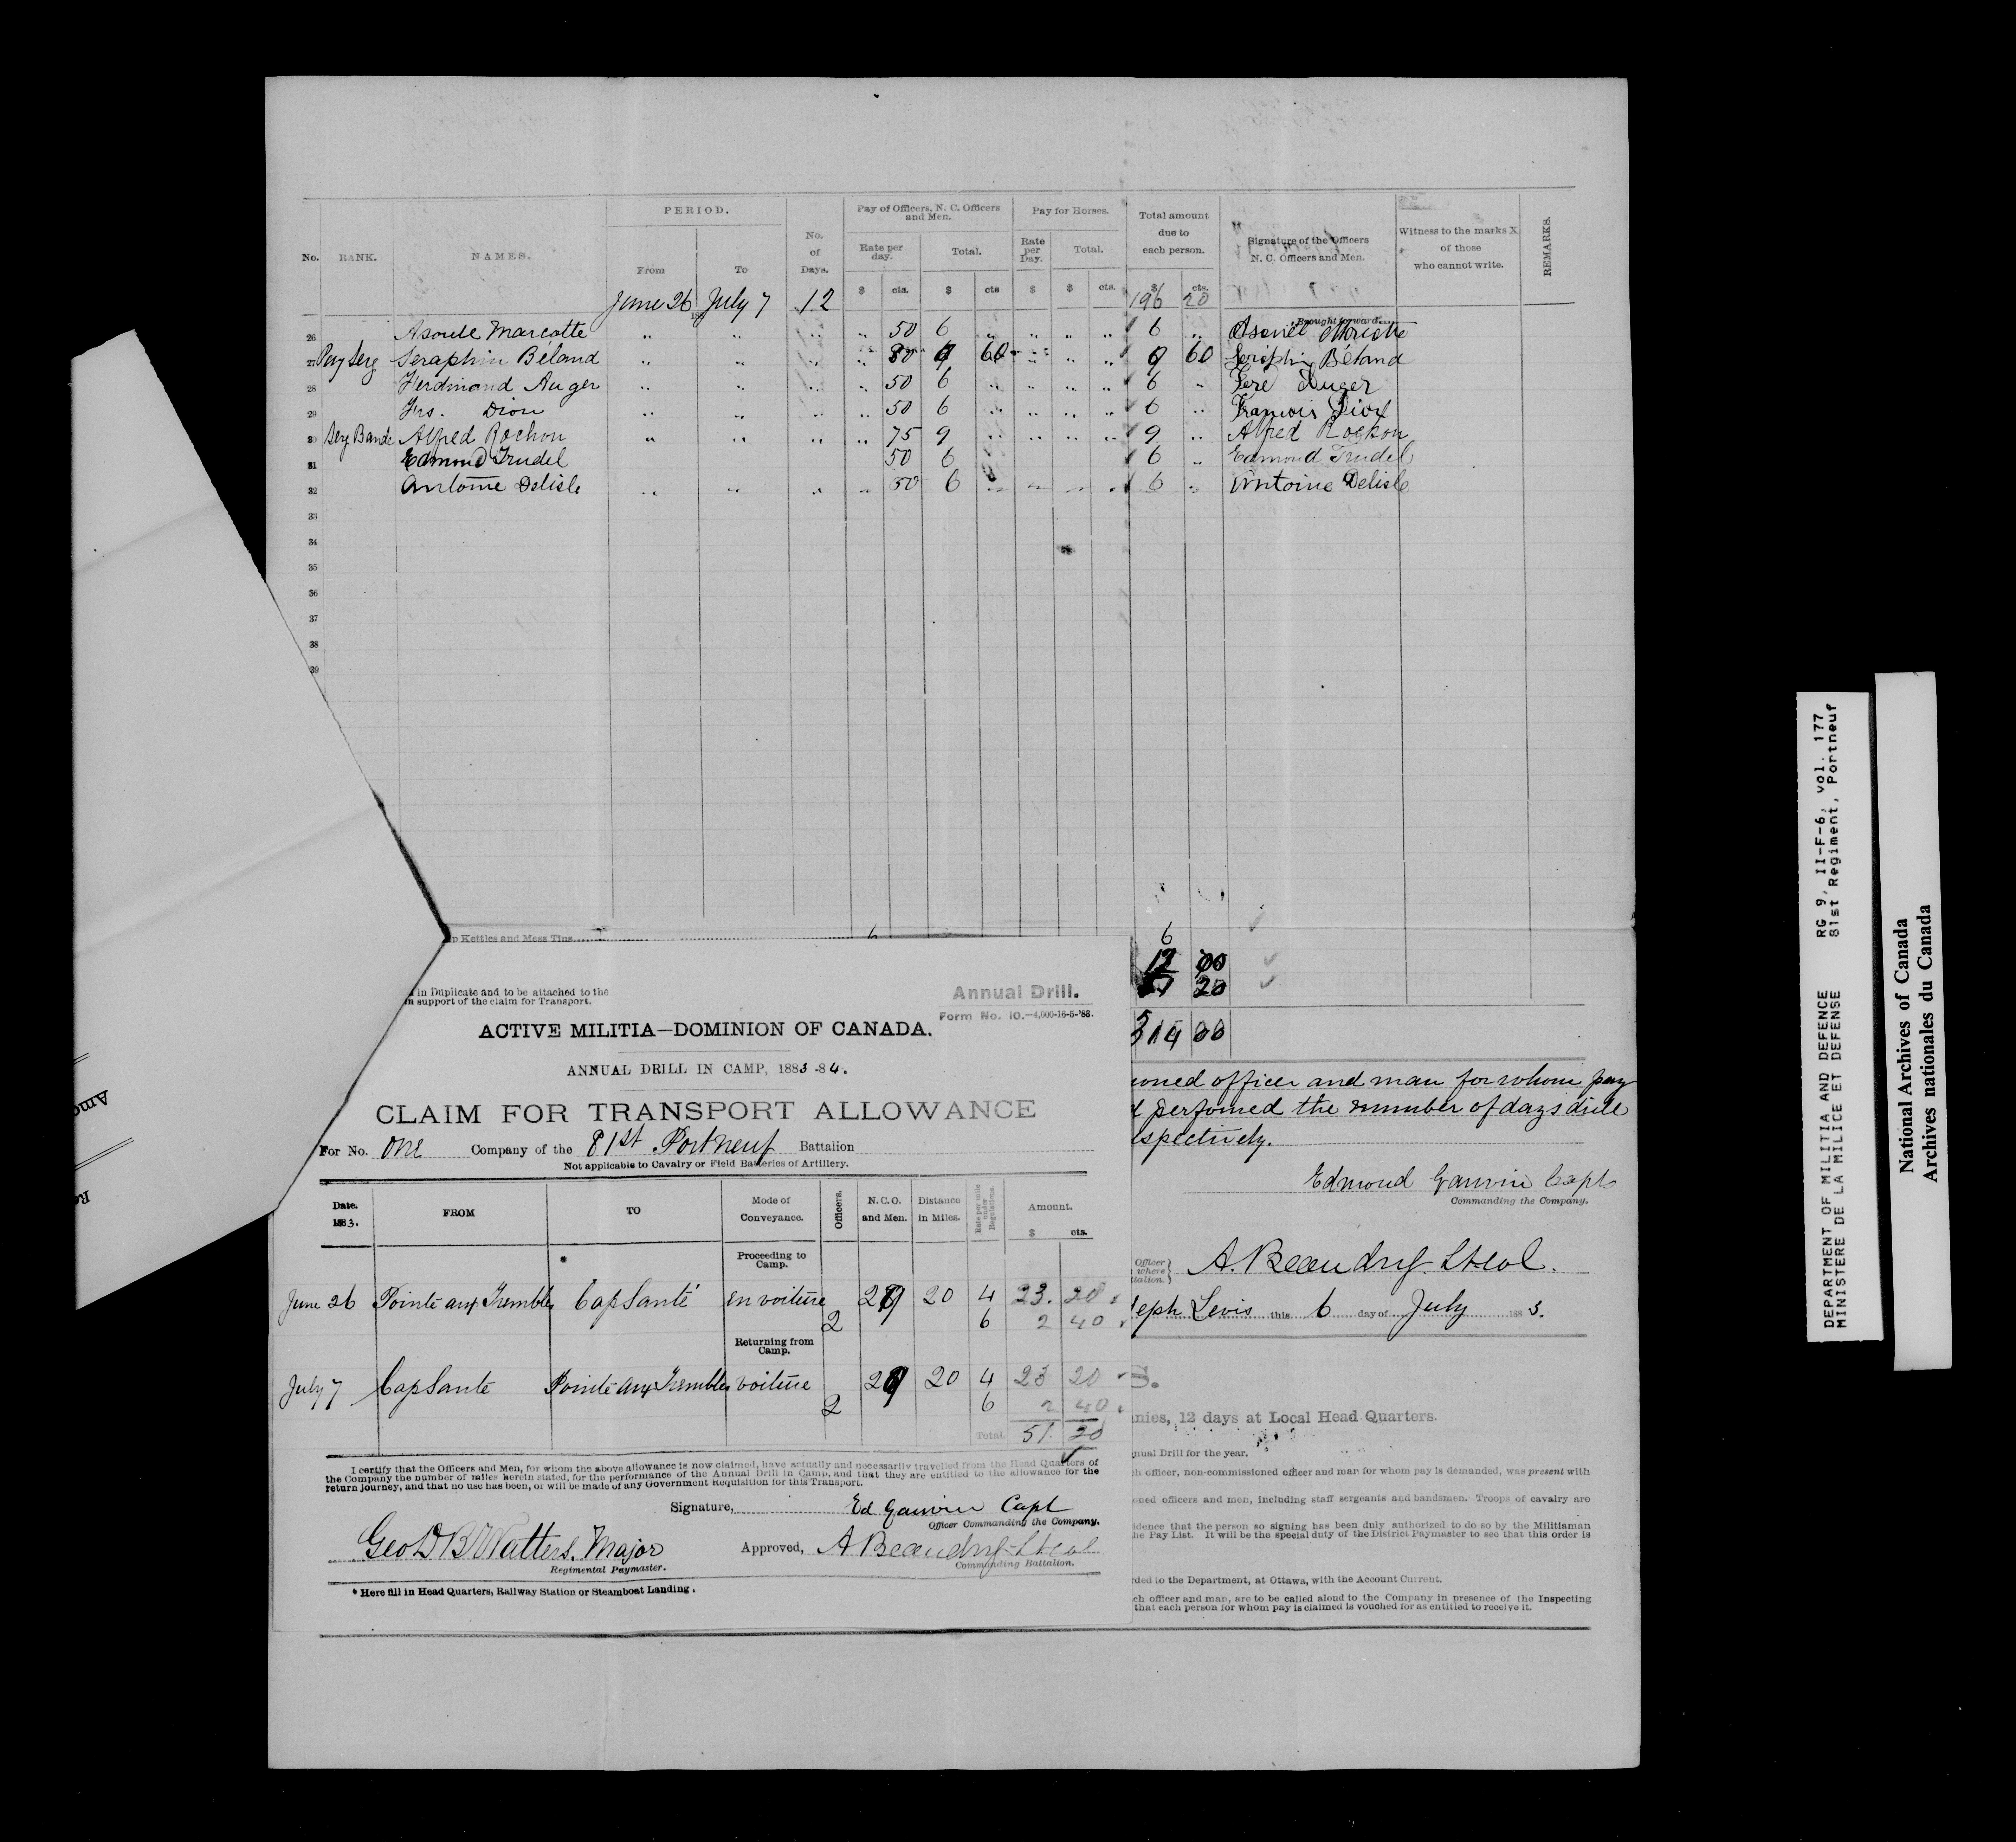 No. RANK. NAMES. PERIOD. From To No. of Days. Pay of Officers, N. C. Officers and Men. Rate per day. $ cts. Total. $ cts Pay for Horses. Rate per Day. $ Total. $ cts. Total amount due to each person. $ cts. Signature of the Officers N. C. Officers and Men. Witness to the marks X of those who cannot write. REMARKS.
June 26 July 7 12 196 20 Brought forward
26 Asouel Marcotte " " " " 50 6 " " " " 6 " Asouel Marcotte
27 Pay Serg Seraphin Béland " " " " 80 9 60 " " " 9 60 Seraphin Béland
28 Ferdinand Auger " " " " 50 6 " " " " 6 " Ferd Auger
29 Frs. Dion " " " " 50 6 " " " " 6 " Francois Dion
30 Serg Band Alfred Rochon " " " " 75 9 " " " " 9 " Alfred Rochon
31 Edmond Trudel 50 6 6 " Edmond Trudel
32 Antoine Delisle " " " " 50 6 " " " " 6 " Antoine Delisle
33
34
35
36
37
38
39
p Kettles and Mess Tins 6 6
12 00
20
314 00
in Duplicate and to be attached to the
n support of the claim for Transport.
Annual Drill.
Form No. 10.—4,000-16-5-'83.
ACTIVE MILITIA—DOMINION OF CANADA.
ANNUAL DRILL IN CAMP, 1883-84.
CLAIM FOR TRANSPORT ALLOWANCE
For No. One Company of the 81st Portneuf Battalion
Not applicable to Cavalry or Field Batteries of Artillery.
Date. 1883. FROM TO Mode of Conveyance. Officers. N.C.O. and Men. Distance in Miles. Rate per mile under Regulations. Amount. $ cts.
* Proceeding to Camp.
June 26 Pointe aux Trembles Cap Santé en voiture 29 20 4 23. 20
2 6 2 40
Returning from Camp.
July 7 Cap Santé Pointe aux Trembles voiture 29 20 4 23 20
2 6 2 40
Total 51. 20
I certify that the Officers and Men, for whom the above allowance is now claimed, have actually and necessarily travelled from the Head Quarters of
the Company the number of miles herein stated, for the performance of the Annual Drill in Camp, and that they are entitled to the allowance for the
return journey, and that no use has been, or will be made of any Government Requisition for this Transport.
Signature, Ed Garvin Capt
Officer Commanding the Company.
Geo D B Watters. Major
Regimental Paymaster.
Approved, A Beaudry Lt Col
Commanding Battalion.
* Here fill in Head Quarters, Railway Station or Steamboat Landing.
oned officer and man for whom pay
d perfomed the number of days drill
espectively.
Edmond Garvin Capt
Commanding the Company.
Officer
where
talion.
A. Beaudry Lt Col.
seph Levis this 6 day of July 1883.
S.
nies, 12 days at Local Head Quarters.
nual Drill for the year.
ch officer, non-commissioned officer and man for whom pay is demanded, was present with
oned officers and men, including staff sergeants and bandsmen. Troops of cavalry are
idence that the person so signing has been duly authorized to do so by the Militiaman
he Pay List. It will be the special duty of the District Paymaster to see that this order is
rded to the Department, at Ottawa, with the Account Current.
ch officer and man, are to be called aloud to the Company in presence of the Inspecting
that each person for whom pay is claimed is vouched for as entitled to receive it.
Amo
Re
DEPARTMENT OF MILITIA AND DEFENCE RG 9, II-F-6, vol. 177
MINISTERE DE LA MILICE ET DEFENSE 81st Regiment, Portneuf
National Archives of Canada
Archives nationales du Canada